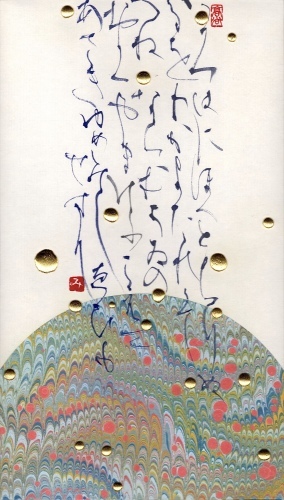 いろはにほへとちりぬ
るをわかよたれそ
つねならむうゐの
おくやまけふこえて
あさきゆめみしゑひも
せす
み